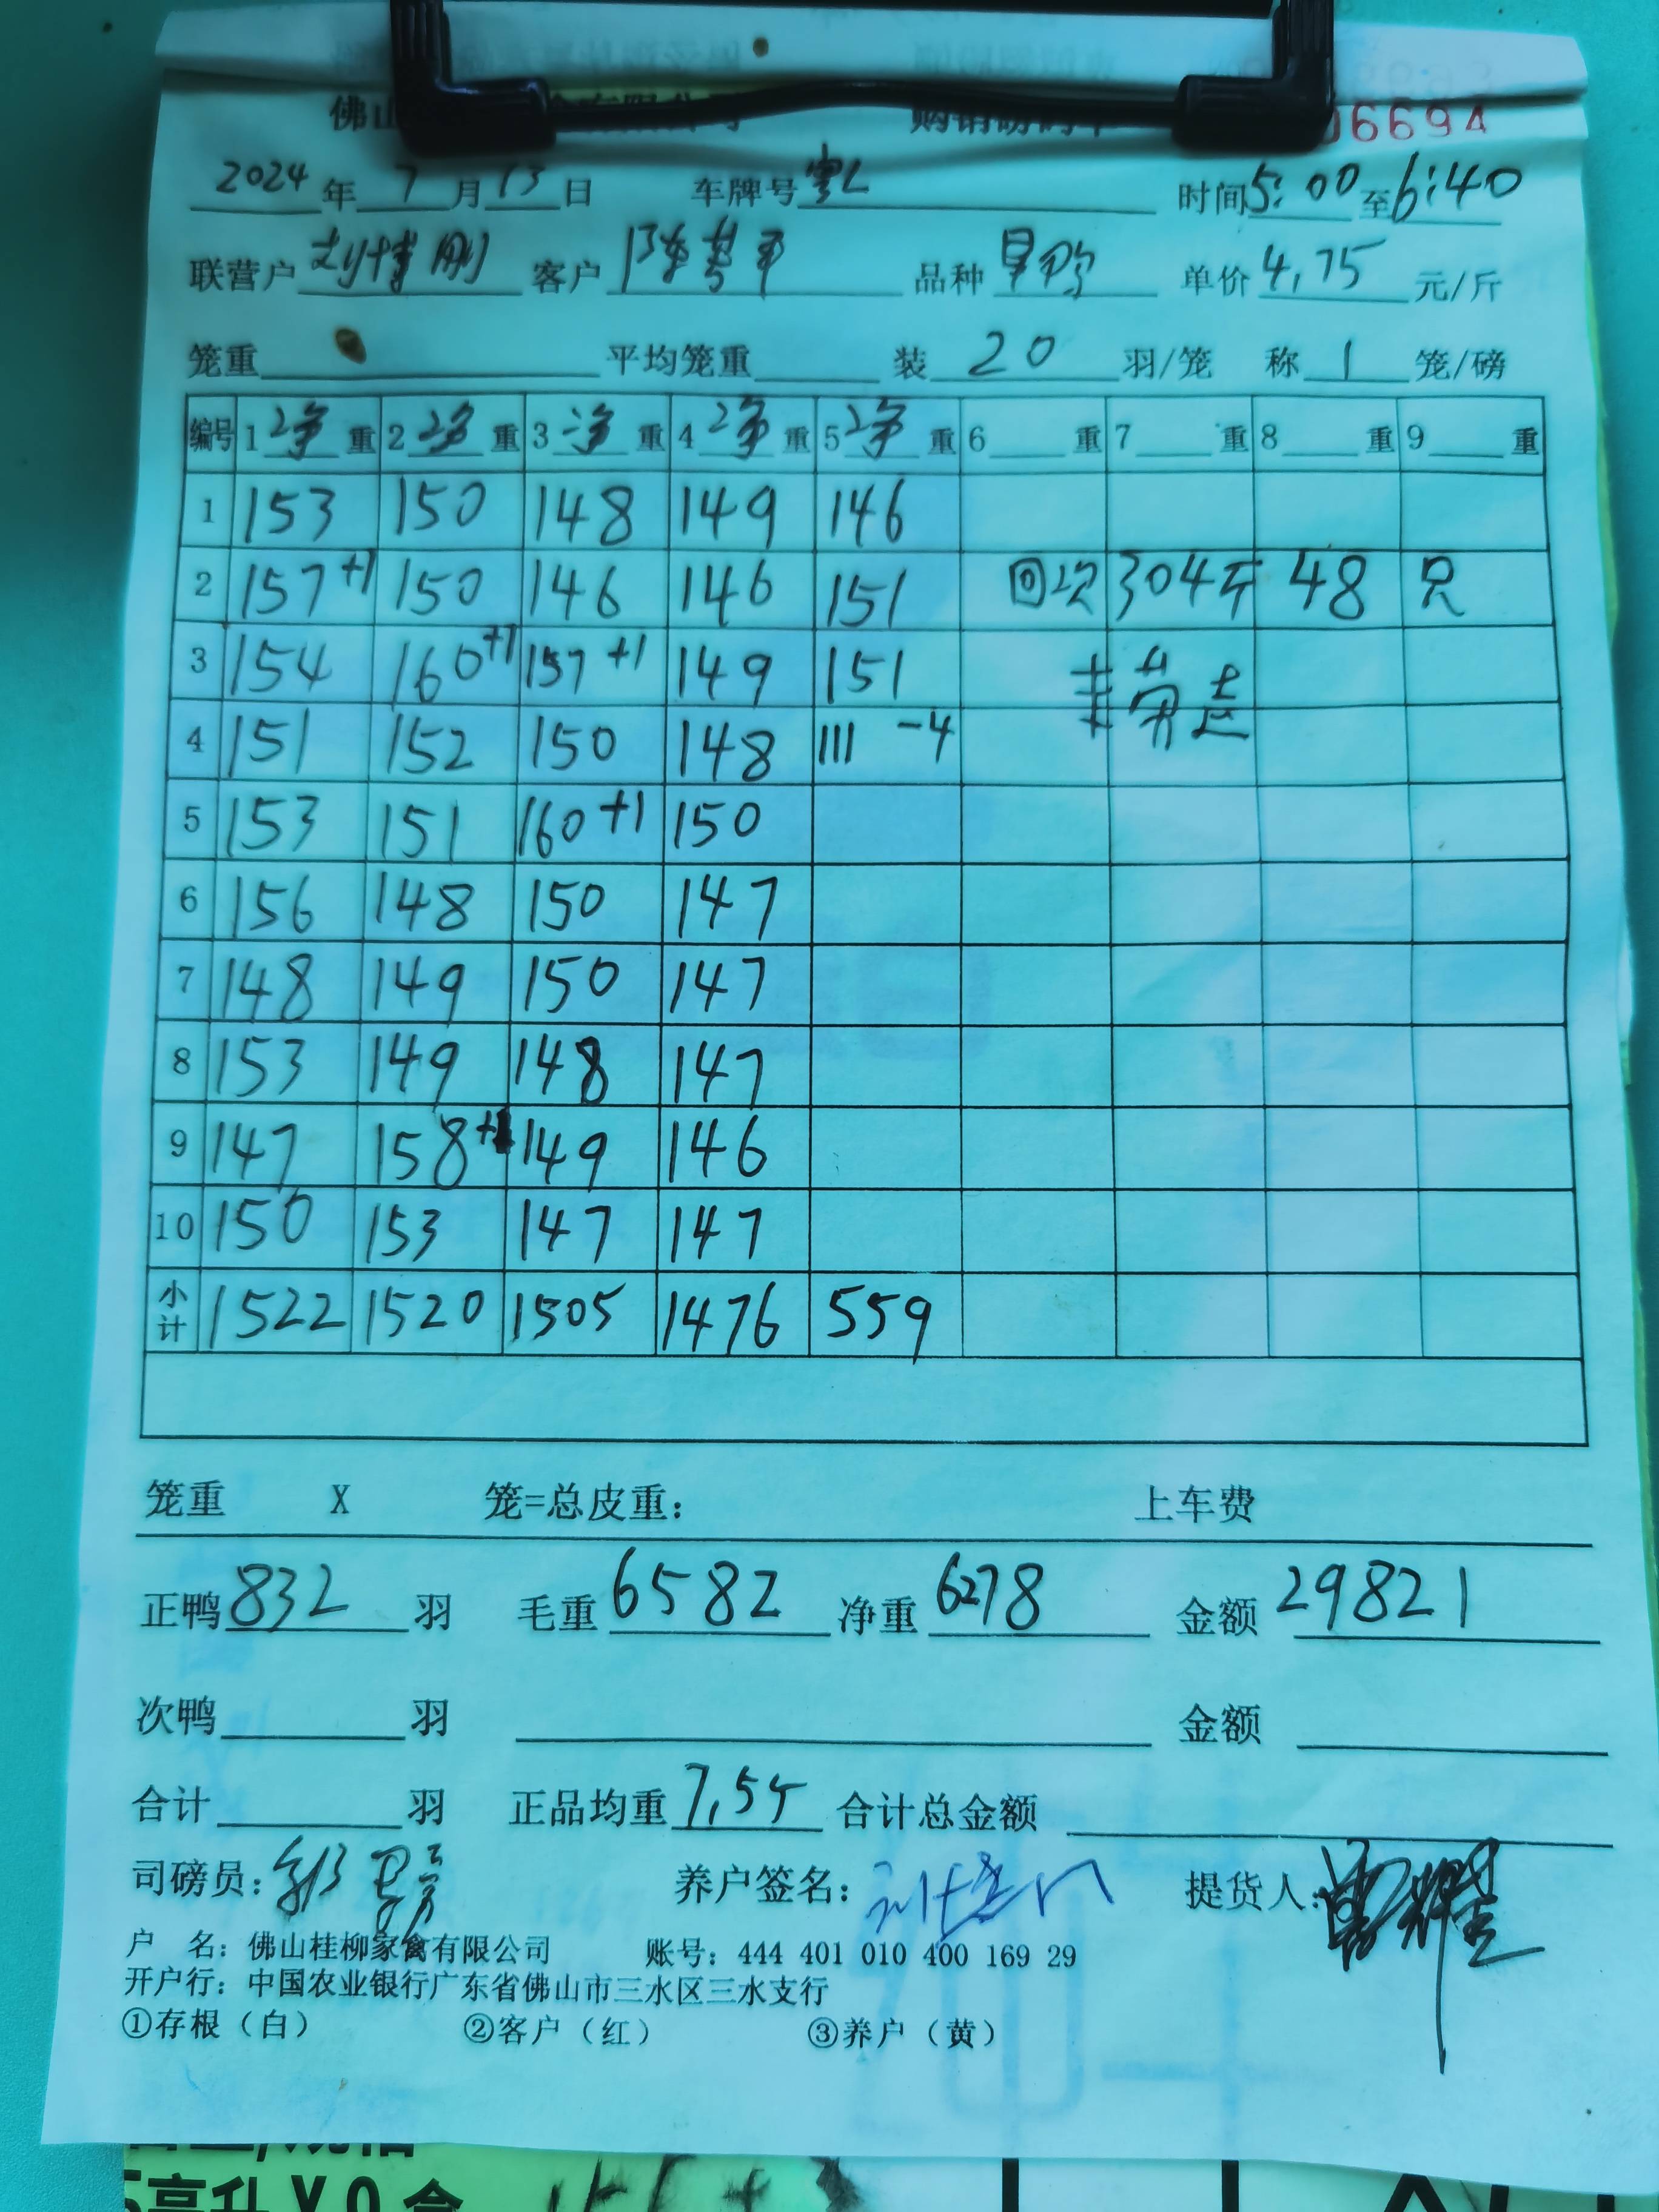 06694
2024年7月13日 车牌号 时间5:00至6:40
联营户刘博刚 客户陈 品种 单价4.75元/斤
笼重 平均笼重 装20羽/笼 称1笼/磅
编号 1净重 2净重 3净重 4净重 5净重 6 重 7 重 8 重 9 重
1 153 150 148 149 146
2 157+1 150 146 146 151 回次 304斤 48只
3 154 160+1 157+1 149 151
4 151 152 150 148 111 -4
5 153 151 160+1 150
6 156 148 150 147
7 148 149 150 147
8 153 149 148 147
9 147 158+1 149 146
10 150 153 147 147
小计 1522 1520 1505 1476 559
笼重 X 笼=总皮重: 上车费
正鸭832羽 毛重6582 净重6278 金额29821
次鸭 羽 金额
合计 羽 正品均重7.545 合计总金额
司磅员: 养户签名: 提货人:
户 名: 佛山桂柳家禽有限公司 账号: 444 401 010 400 169 29
开户行: 中国农业银行广东省佛山市三水区三水支行
①存根（白） ②客户（红） ③养户（黄）